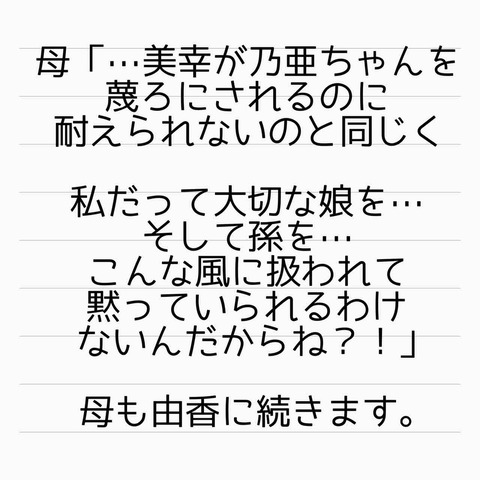 母「…美幸が乃亜ちゃんを
蔑ろにされるのに
耐えられないのと同じく
私だって大切な娘を…
そして孫を…
こんな風に扱われて
黙っていられるわけ
ないんだからね？！」
母も由香に続きます。